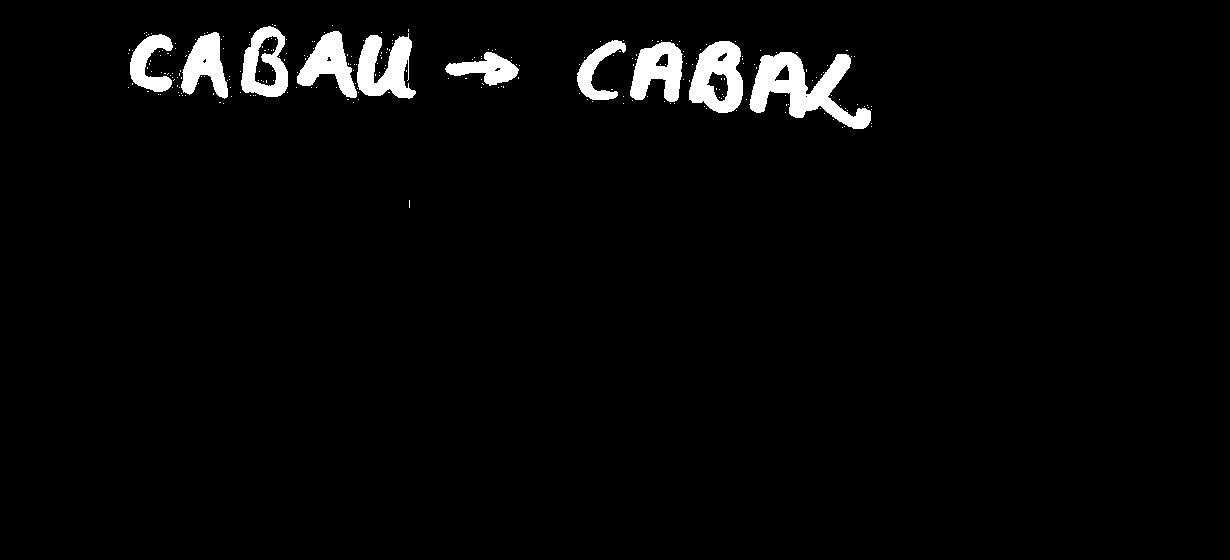 CABAU → CABAL